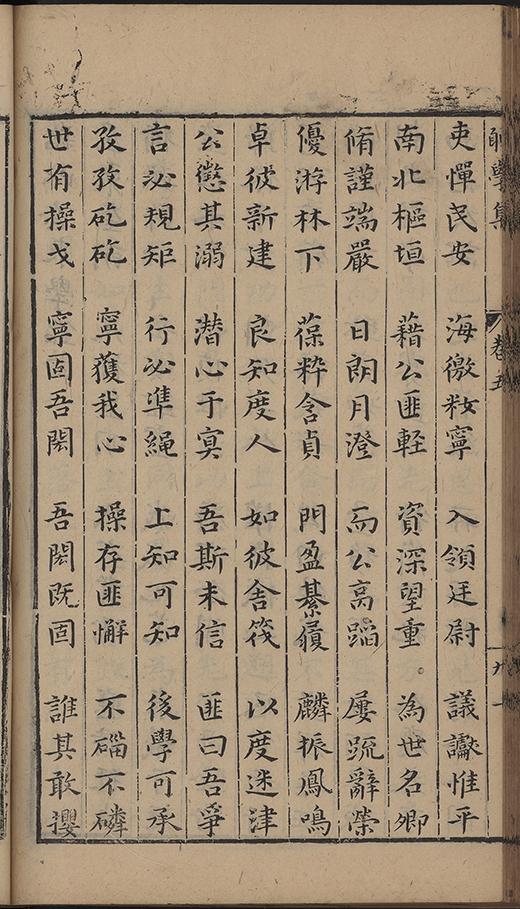 吏憚民安 海徼敉寧 入領廷尉 議讞惟平
南北樞垣 藉公匪輕 資深望重 為世名卿
脩謹端嚴 日朗月澄 而公高蹈 屢疏辭榮
優游林下 葆粹含貞 門盈綦履 麟振鳳鳴
卓彼新建 良知度人 如彼舍筏 以度迷津
公懲其溺 潛心于冥 吾斯未信 匪曰吾爭
言必規矩 行必準繩 上知可知 後學可承
孜孜矻矻 寧獲我心 操存匪懈 不緇不磷
世有操戈 寧固吾閑 吾閑既固 誰其敢攖
學集
卷五